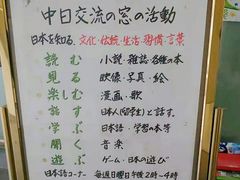 中日交流の窓の活動
日本を知る、文化・伝統・生活・習慣・言葉
読む 小説・雑誌・各種の本
見る 映像・写真・絵
楽しむ 漫画・歌
話す 日本人(留学生)と話す。
学ぶ 日本語・学習の本等
聞く 音楽
遊ぶ ゲーム・日本の遊び
日本語コーナー 毎週日曜日午後2時-4時